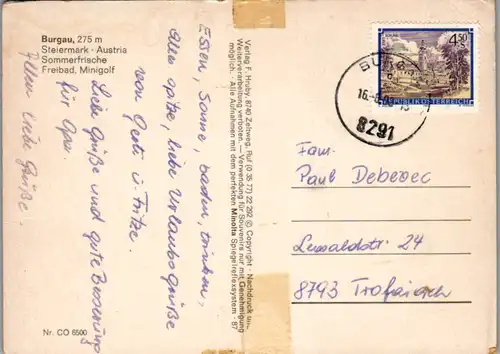 Burgau, 275 m
Steiermark - Austria
Sommerfrische
Freibad, Minigolf
Essen, Sonne, baden, trinken,
alles spitze, liebe Urlaubsgrüße
von Gerti u. Fritze.
Liebe Grüße und gute Besserung
für Opa.
liebe Grüße.
Nr. CO 6500
Verlag F. Hruby, 8740 Zeltweg, Ruf (0 35 77) 22 292 © Copyright Nachdruck u.
Weiterverarbeitung verboten. — Verwendung für Souvenirs nur mit Genehmigung
möglich. - Alle Aufnahmen mit dem perfekten Minolta Spiegelreflexsystem - 87
4.50
REPUBLIK ÖSTERREICH
BURG
16.-8.
8291
Fam.
Paul Debevec
24
8793 Trofaiach